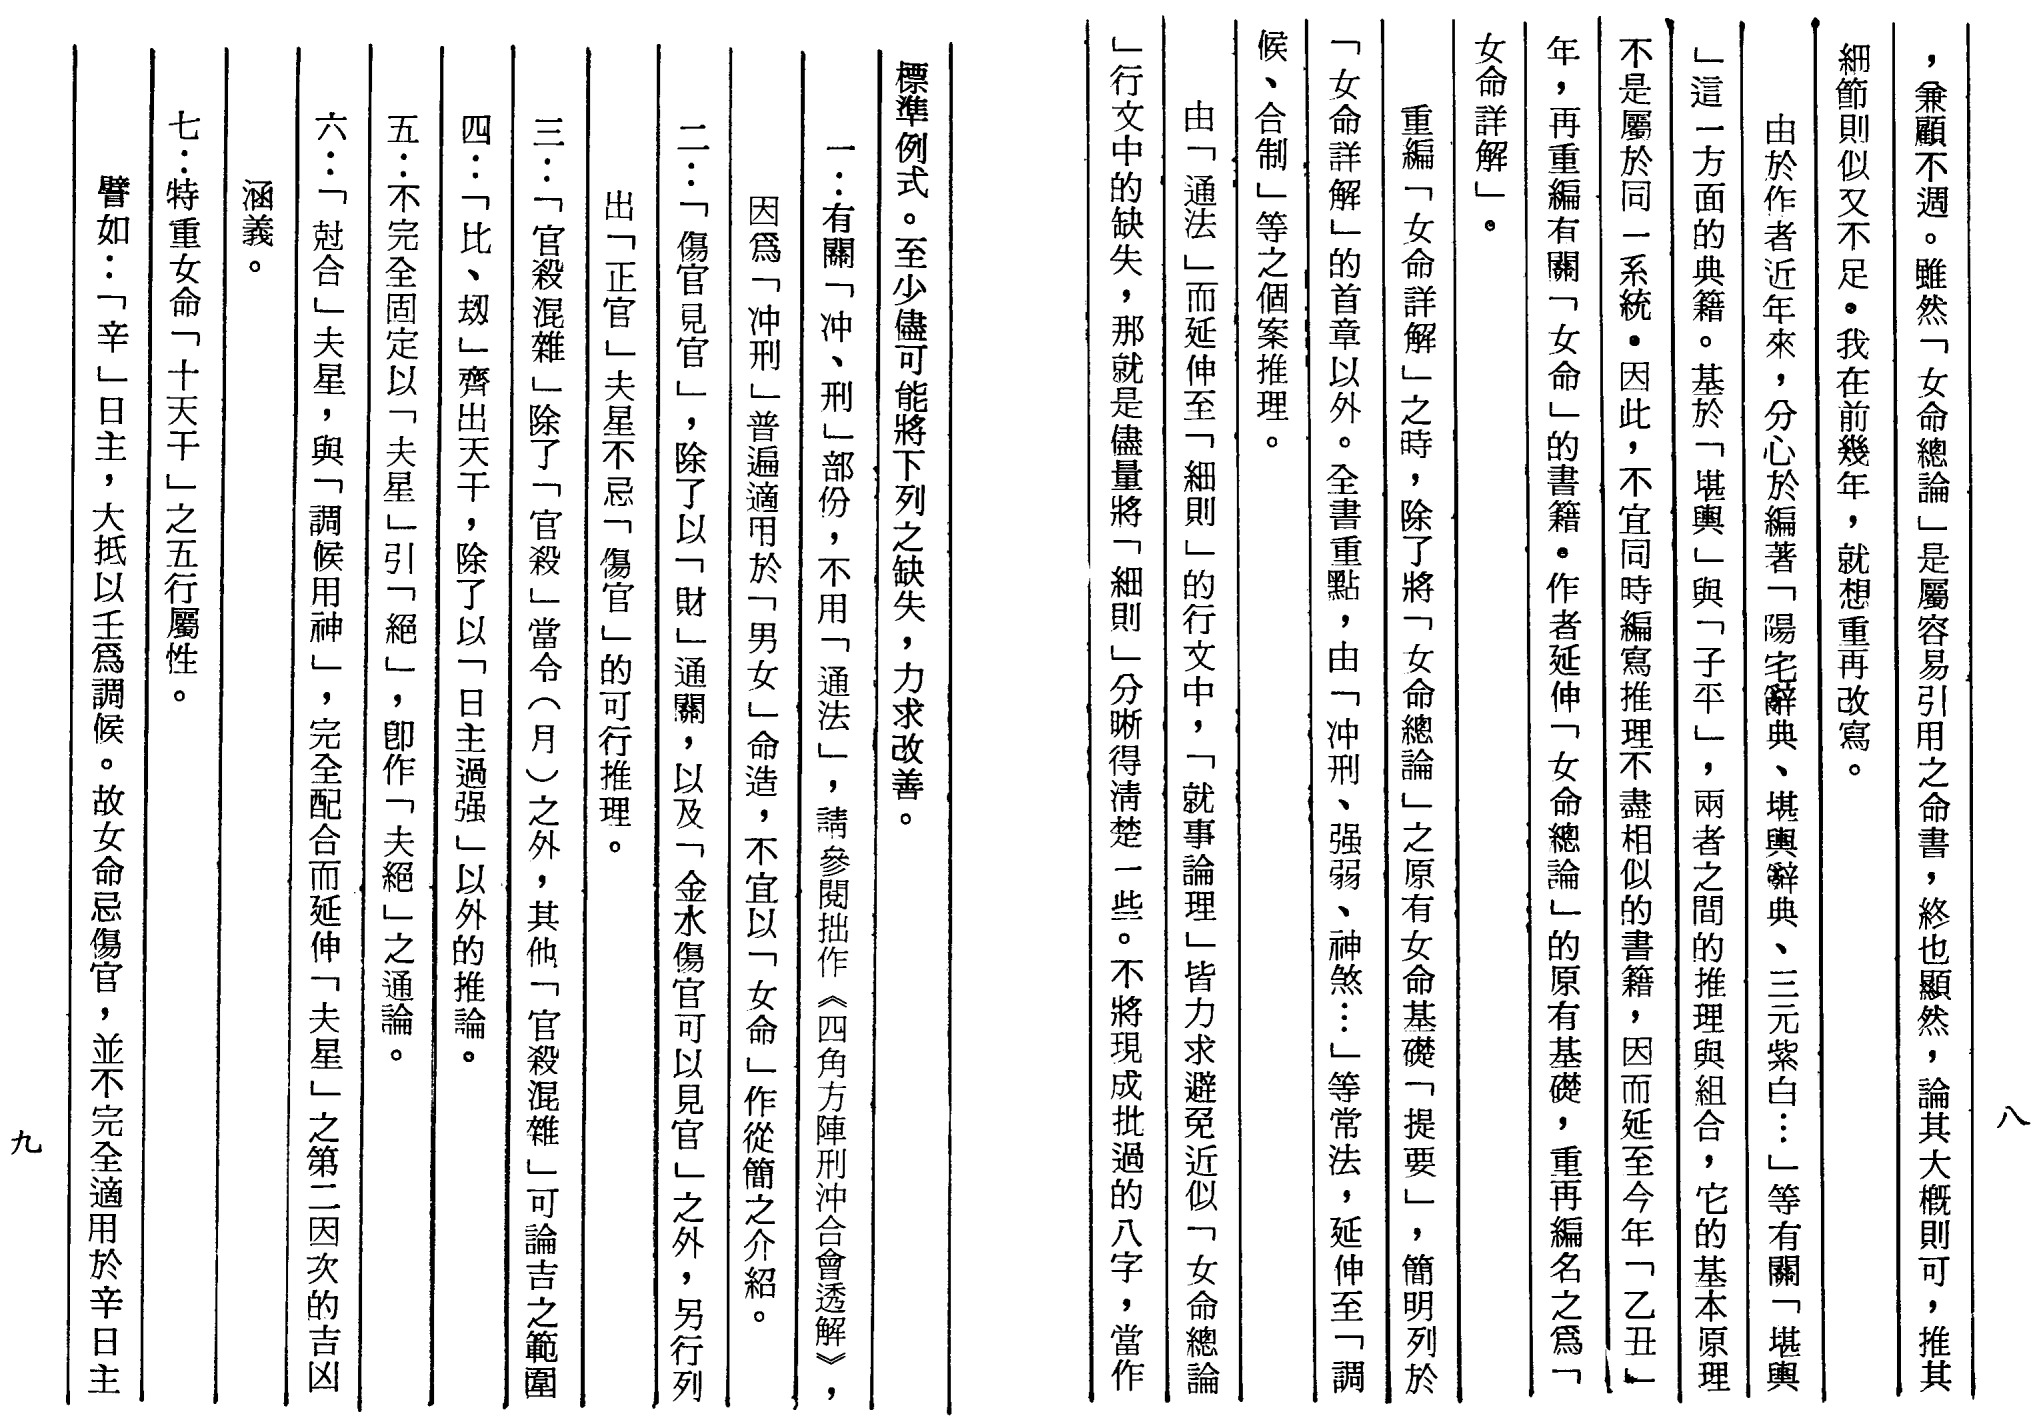 ，兼顧不週。雖然「女命總論」是屬容易引用之命書，終也顯然，論其大概則可，推其
細節則似又不足。我在前幾年，就想重再改寫。
由於作者近年來，分心於編著「陽宅辭典、堪輿辭典、三元紫白…」等有關「堪輿
」這一方面的典籍。基於「堪輿」與「子平」，兩者之間的推理與組合，它的基本原理
不是屬於同一系統。因此，不宜同時編寫推理不盡相似的書籍，因而延至今年「乙丑」
年，再重編有關「女命」的書籍。作者延伸「女命總論」的原有基礎，重再編名之爲「
女命詳解」。
重編「女命詳解」之時，除了將「女命總論」之原有女命基礎「提要」，簡明列於
「女命詳解」的首章以外。全書重點，由「冲刑、强弱、神煞…」等常法，延伸至「調
候、合制」等之個案推理。
由「通法」而延伸至「細則」的行文中，「就事論理」皆力求避免近似「女命總論
」行文中的缺失，那就是儘量將「細則」分晰得清楚一些。不將現成批過的八字，當作
八
標準例式。至少儘可能將下列之缺失，力求改善。
一：有關「冲、刑」部份，不用「通法」，請參閱拙作《四角方陣刑冲合會透解》，
因爲「冲刑」普遍適用於「男女」命造，不宜以「女命」作從簡之介紹。
二：「傷官見官」，除了以「財」通關，以及「金水傷官可以見官」之外，另行列
出「正官」夫星不忌「傷官」的可行推理。
三：「官殺混雜」除了「官殺」當令（月）之外，其他「官殺混雜」可論吉之範圍
四：「比、刼」齊出天干，除了以「日主過强」以外的推論。
五：不完全固定以「夫星」引「絕」，卽作「夫絕」之通論。
六：「尅合」夫星，與「調候用神」，完全配合而延伸「夫星」之第二因次的吉凶
涵義。
七：特重女命「十天干」之五行屬性。
譬如：「辛」日主，大抵以壬爲調候。故女命忌傷官，並不完全適用於辛日主
九